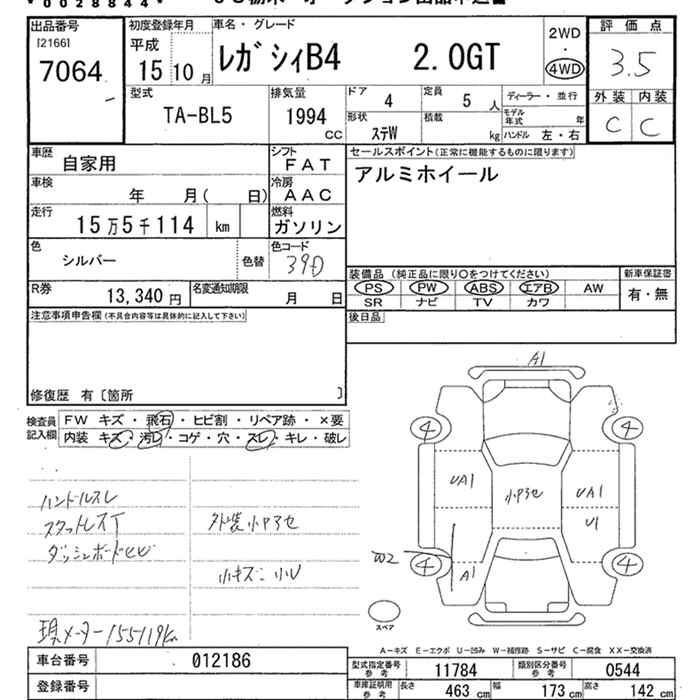 *0028844*
出品番号
[2166]
7064
初度登録年月
平成
15 10月
車名・グレード
レガシィB4 2.0GT
2WD
・
4WD
評価点
3.5
外装 内装
C C
型式
TA-BL5
排気量
1994
CC
ドア
4
定員
5 人
形状
ステW
積載
kg
ディーラー・並行
モデル年式 年
ハンドル 左・右
車歴
自家用
シフト
FAT
車検
年 月( 日)
冷房
AAC
走行
15万5千114 km
燃料
ガソリン
色
シルバー
色替
色コード
39D
R券
13,340円
名変通知期限
月 日
セールスポイント(正常に機能するものに限ります)
アルミホイール
装備品 (純正品に限り○をつけてください)
PS PW ABS エアB AW
SR ナビ TV カワ
新車保証書
有・無
後日品
注意事項申告欄(不具合内容等は具体的に記入して下さい)
修復歴 有〔箇所 〕
検査員記入欄
FW キズ・飛石・ヒビ割・リペア跡・×要
内装 キズ・汚レ・コゲ・穴・スレ・キレ・破レ
ハンドルスレ
ダッシュボードヒビ
外装小キズ
小キズ
現メーター155119km
A1
4
4
UA1
UA1
U1
W2
A1
4
4
スペア
A-キズ E-エクボ U-凹み W-補修跡 S-サビ C-腐食 XX-交換済
車台番号
012186
登録番号
型式指定番号
参考
11784
類別区分番号
参考
0544
車庫証明用
参考
長さ 463 cm
幅 173 cm
高さ 142 cm